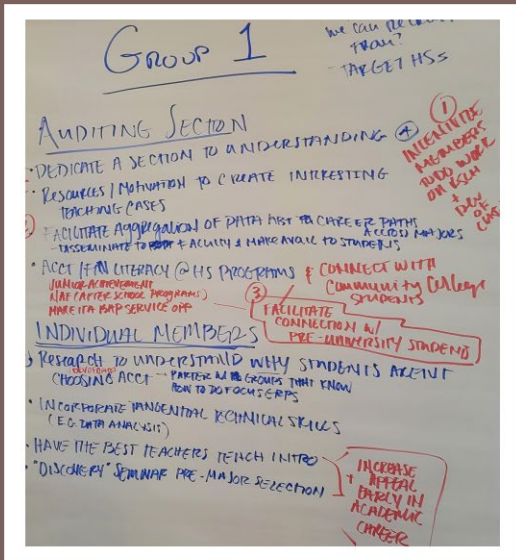 GROUP 1
WE CAN
FROM?
- TARGET HSs
AUDITING SECTION
• DEDICATE A SECTION TO UNDERSTANDING
• RESOURCES / MOTIVATION TO CREATE INTERESTING
TEACHING CASES
FACILITATE AGGREGATION OF DATA CAREER PATHS
ACROSS MAJORS
- DISSEMINATE TO FACULTY & MAKE AVAIL TO STUDENTS
• ACCT / FIN LITERACY @ HS PROGRAMS
JUNIOR ACHIEVEMENT
(AFTER SCHOOL PROGRAMS)
MAKE IT A BAP SERVICE OPP
& CONNECT WITH
COMMUNITY COLLEGE
STUDENTS
③
FACILITATE
CONNECTION W/
PRE-UNIVERSITY STUDENTS
①
INCENTIVIZE
MEMBERS
TO DO WORK
ON
+ DEV
OF
INDIVIDUAL MEMBERS
RESEARCH TO UNDERSTAND WHY STUDENTS ARENT
CHOOSING ACCT - GROUPS THAT KNOW
HOW TO DO FOCUS GRPS
• INCORPORATE TANGENTIAL TECHNICAL SKILLS
(E.G. DATA ANALYSIS)
• HAVE THE BEST TEACHERS TEACH INTRO
• "DISCOVERY" SEMINAR PRE-MAJOR SELECTION
INCREASE
APPEAL
EARLY IN
ACADEMIC
CAREER